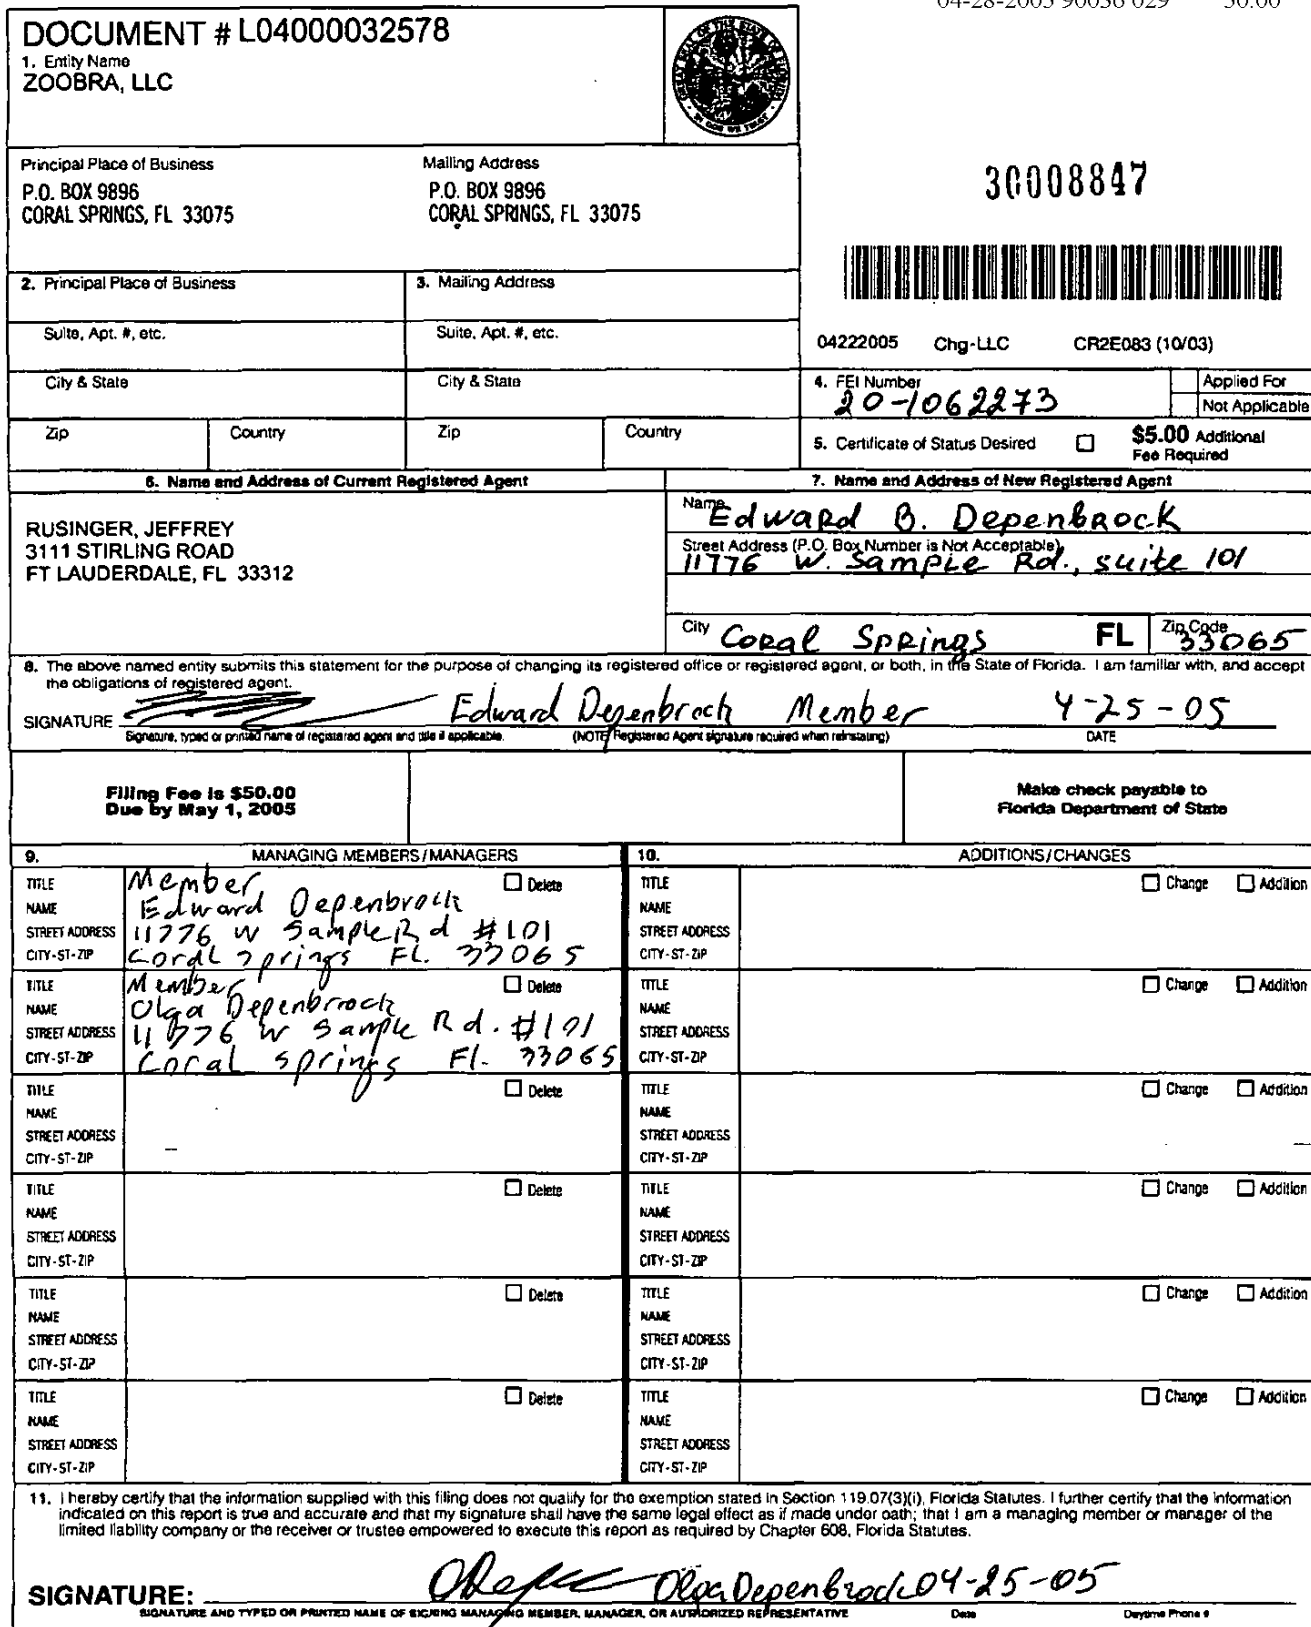 04-28-2005 90036 029 50.00
DOCUMENT # L04000032578
1. Entity Name
ZOOBRA, LLC
Principal Place of Business
P.O. BOX 9896
CORAL SPRINGS, FL 33075
Mailing Address
P.O. BOX 9896
CORAL SPRINGS, FL 33075
30008847
2. Principal Place of Business
3. Mailing Address
Suite, Apt. #, etc.
Suite, Apt. #, etc.
04222005 Chg-LLC CR2E083 (10/03)
City & State
City & State
4. FEI Number
20-1062273
Applied For
Not Applicable
Zip
Country
Zip
Country
5. Certificate of Status Desired
$5.00 Additional
Fee Required
6. Name and Address of Current Registered Agent
7. Name and Address of New Registered Agent
RUSINGER, JEFFREY
3111 STIRLING ROAD
FT LAUDERDALE, FL 33312
Name
Edward B. Depenbrock
Street Address (P.O. Box Number is Not Acceptable)
11776 W. Sample Rd., suite 101
City Coral Springs FL Zip Code 33065
8. The above named entity submits this statement for the purpose of changing its registered office or registered agent, or both, in the State of Florida. I am familiar with, and accept
the obligations of registered agent.
SIGNATURE Edward Depenbrock Member 4-25-05
Signature, typed or printed name of registered agent and title if applicable. (NOTE: Registered Agent signature required when reinstating) DATE
Filing Fee is $50.00
Due by May 1, 2005
Make check payable to
Florida Department of State
9. MANAGING MEMBERS/MANAGERS
10. ADDITIONS/CHANGES
TITLE Member Delete
NAME Edward Depenbrock
STREET ADDRESS 11776 W Sample Rd #101
CITY-ST-ZIP Coral Springs FL. 33065
TITLE Change Addition
NAME
STREET ADDRESS
CITY-ST-ZIP
TITLE Member Delete
NAME Olga Depenbrock
STREET ADDRESS 11776 W Sample Rd. #101
CITY-ST-ZIP Coral Springs Fl. 33065
TITLE Change Addition
NAME
STREET ADDRESS
CITY-ST-ZIP
TITLE Delete
NAME
STREET ADDRESS
CITY-ST-ZIP
TITLE Change Addition
NAME
STREET ADDRESS
CITY-ST-ZIP
TITLE Delete
NAME
STREET ADDRESS
CITY-ST-ZIP
TITLE Change Addition
NAME
STREET ADDRESS
CITY-ST-ZIP
TITLE Delete
NAME
STREET ADDRESS
CITY-ST-ZIP
TITLE Change Addition
NAME
STREET ADDRESS
CITY-ST-ZIP
TITLE Delete
NAME
STREET ADDRESS
CITY-ST-ZIP
TITLE Change Addition
NAME
STREET ADDRESS
CITY-ST-ZIP
11. I hereby certify that the information supplied with this filing does not qualify for the exemption stated in Section 119.07(3)(i), Florida Statutes. I further certify that the information
indicated on this report is true and accurate and that my signature shall have the same legal effect as if made under oath; that I am a managing member or manager of the
limited liability company or the receiver or trustee empowered to execute this report as required by Chapter 608, Florida Statutes.
SIGNATURE: Olga Depenbrock 04-25-05
SIGNATURE AND TYPED OR PRINTED NAME OF SIGNING MANAGING MEMBER, MANAGER, OR AUTHORIZED REPRESENTATIVE Date Daytime Phone #